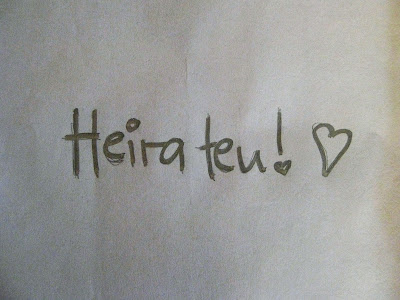 Heiraten! ♡